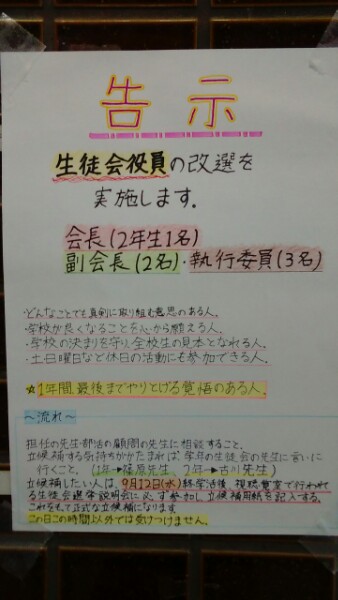 告示
生徒会役員の改選を
実施します.
会長(2年生1名)
副会長(2名)・執行委員(3名)
・どんなことでも真剣に取り組む意思のある人.
・学校が良くなることを心から願える人.
・学校の決まりを守り、全校生の見本となれる人.
・土・日曜日など休日の活動にも参加できる人.
☆1年間最後までやりとげる覚悟のある人.
〜流れ〜
担任の先生・部活の顧問の先生に相談すること.
立候補する気持ちがかたまれば、学年の生徒会の先生に言いに
行くこと. (1年→篠原先生、2年→古川先生)
立候補したい人は、9月12日(水)終学活後、視聴覚室で行われ
る生徒会選挙説明会に必ず参加し、立候補用紙を記入する.
これをもって正式な立候補になります
この日この時間以外では受けつけません.